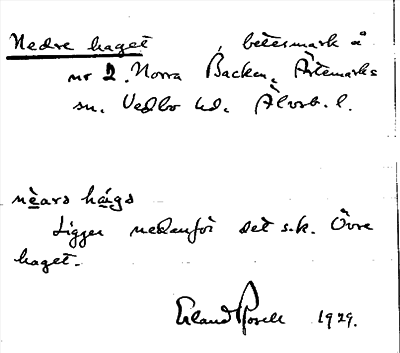 Nedre haget, betesmark å
nr 2. Norra Backen, Ärtemarks
sn. Vedbo hd. Älvsb. l.
nèars hágs
Ligger nedanför det s.k. Övre
haget.
Erland Rosell 1929.